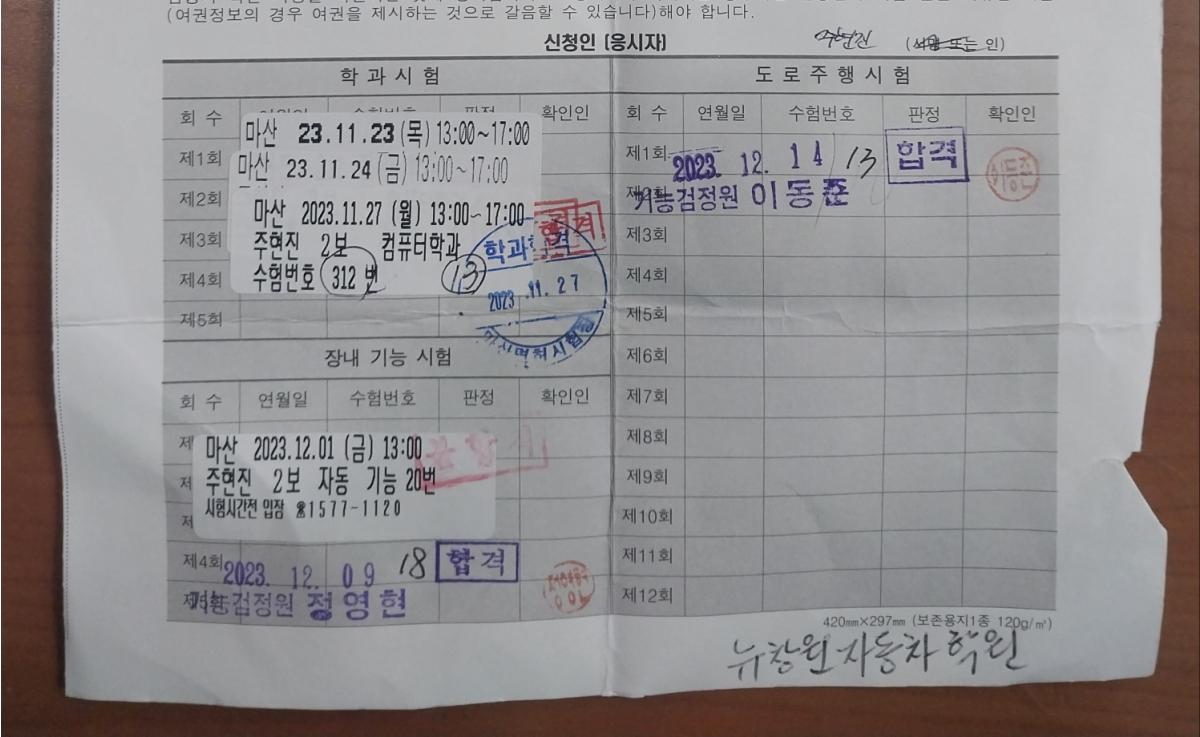 (여권정보의 경우 여권을 제시하는 것으로 갈음할 수 있습니다)해야 합니다.
신청인 (응시자) 주현진 (서명 또는 인)
학과시험
회 수 확인인
마산 23.11.23(목) 13:00~17:00
제1회
마산 23.11.24(금) 13:00~17:00
제2회
마산 2023.11.27 (월) 13:00~17:00
제3회
주현진 2보 컴퓨터학과
제4회
수험번호 312 번 13
제5회
학과합격
2023 .11. 27
마산면허시험장
장내 기능 시험
회 수 연월일 수험번호 판정 확인인
마산 2023.12.01 (금) 13:00
주현진 2보 자동 기능 20번
시험시간전 입장 ☎1577-1120
제4회 2023. 12. 09 18 합격
제5회 기능검정원 정영현
도로주행시험
회 수 연월일 수험번호 판정 확인인
제1회 2023. 12. 14 13 합격 이동준
제2회 기능검정원 이동준
제3회
제4회
제5회
제6회
제7회
제8회
제9회
제10회
제11회
제12회
420㎜×297㎜ (보존용지1종 120g/㎡)
뉴창원자동차 학원